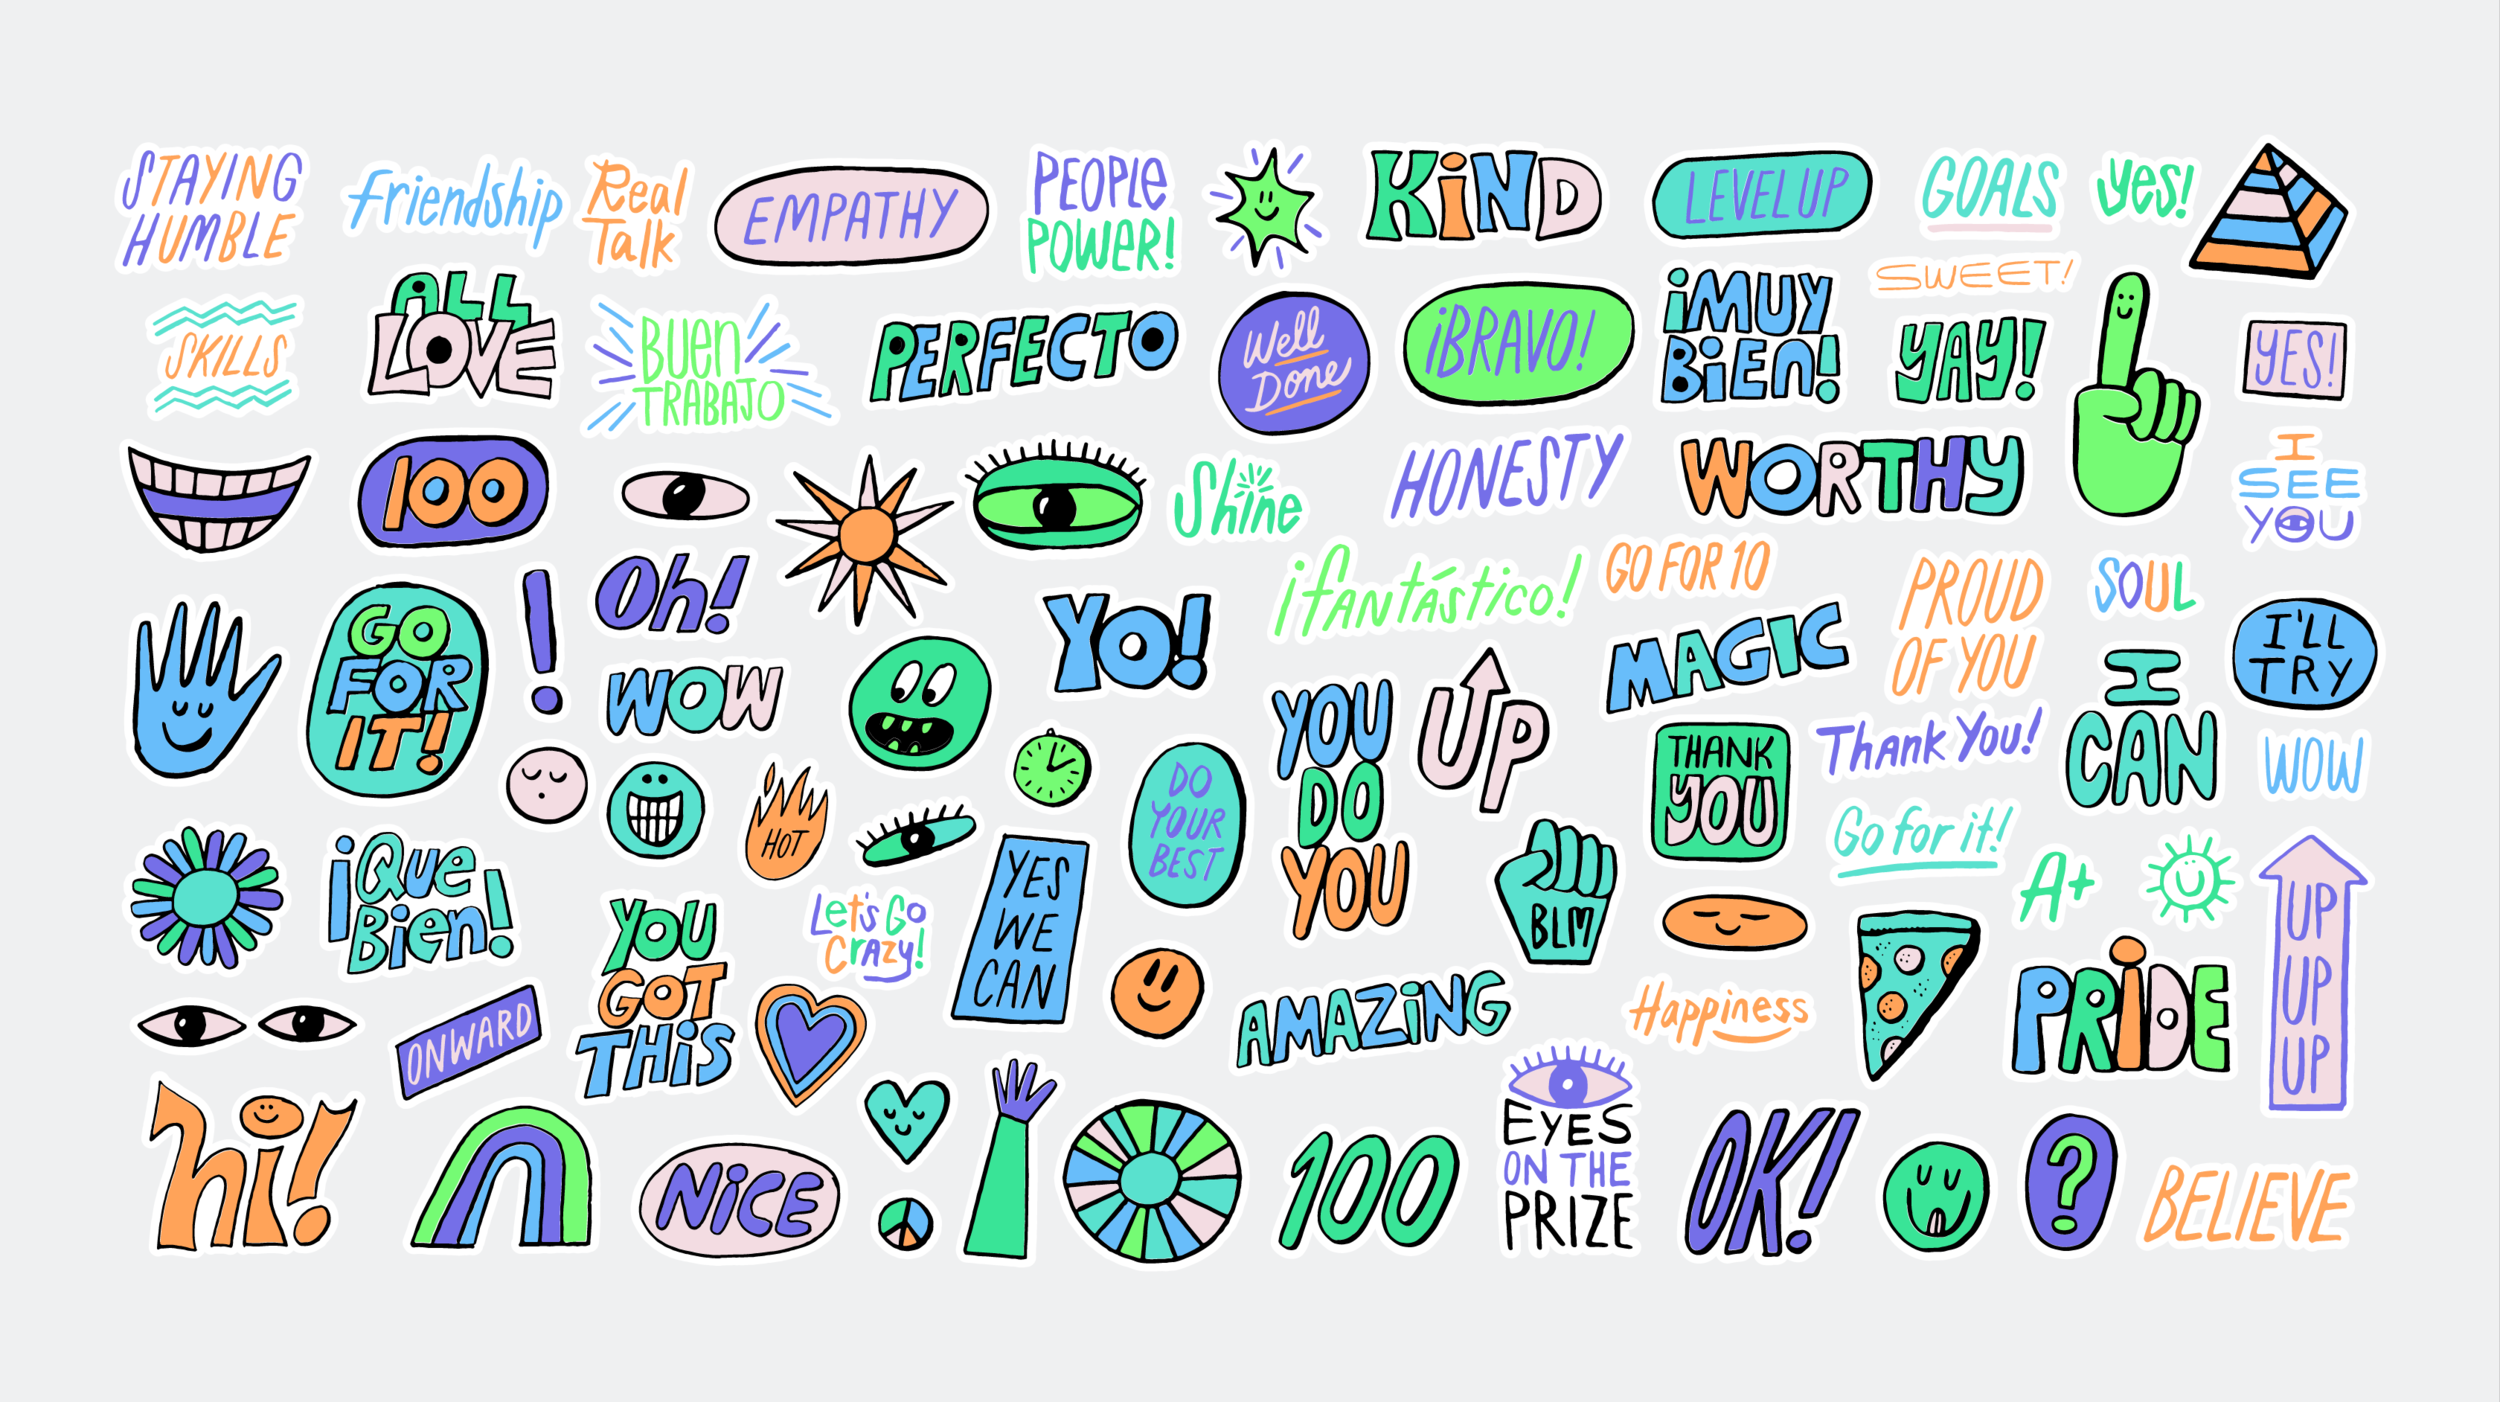 STAYING
HUMBLE
friendship
Real
Talk
EMPATHY
PEOPLE
POWER!
KiND
LEVEL UP
GOALS
yes!
SWEET!
SKILLS
ALL
LOVE
BUEN
TRABAJO
PERFECTO
Well
Done
¡BRAVO!
¡MUY
BiEN!
YAY!
YES!
100
Shine
HONESTY
WORTHY
I
SEE
YOU
GO
FOR
IT!
!
Oh!
WOW
Yo!
¡fantástico!
GO FOR 10
MAGIC
PROUD
OF YOU
SOUL
I'LL
TRY
HOT
DO
YOUR
BEST
YOU
DO
YOU
UP
THANK
YOU
Thank You!
I
CAN
WOW
Go for it!
¡Que
Bien!
YOU
GOT
THiS
Let's Go
Crazy!
YES
WE
CAN
BLM
A+
UP
UP
UP
ONWARD
AMAZiNG
Happiness
PRiDE
hi!
NiCE
100
EYES
ON THE
PRIZE
OK!
?
BELIEVE